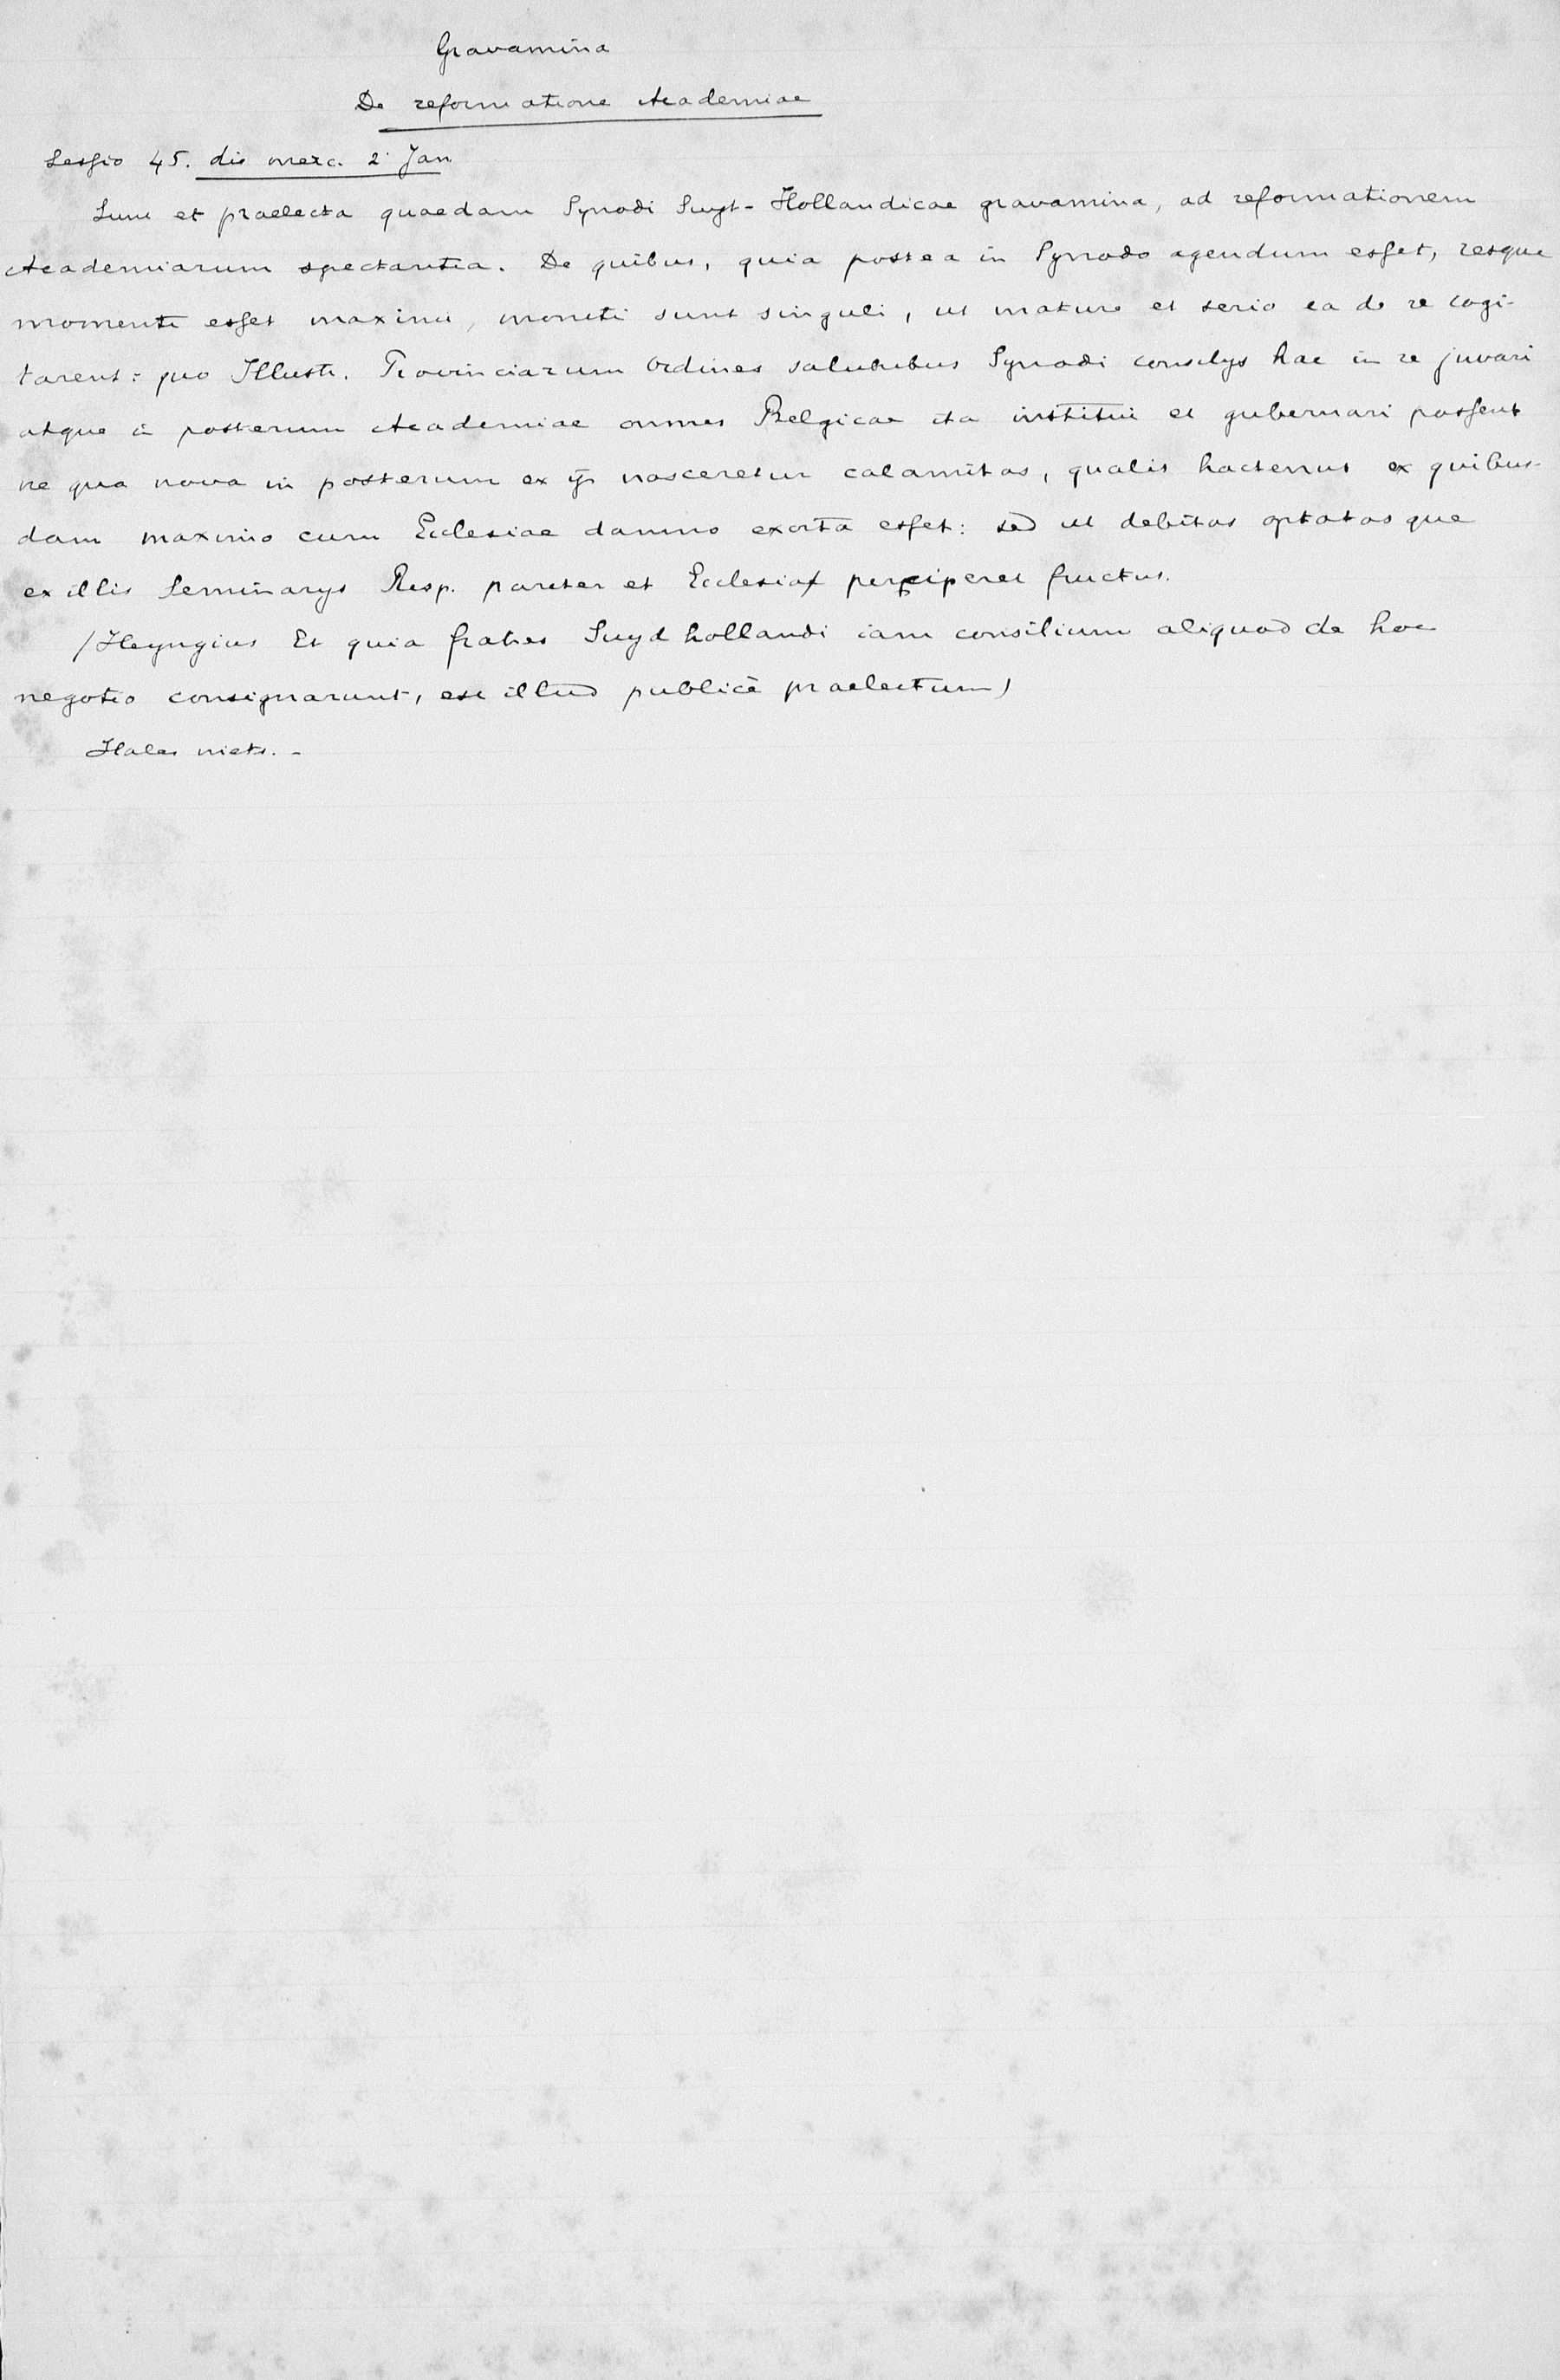 Gravamina
De reformatione Academiae
Sessio 45. die merc. 2 Jan
Sunt et praelecta quaedam Synodi Suyt-Hollandicae gravamina, ad reformationem
Academiarum spectantia. De quibus, quia postea in Synodo agendum esset, resque
momenti esset maximi, moniti sunt singuli, ut mature et serio ea de re cogi-
tarent: quo Illustr. Provinciarum Ordines salubribus Synodi consilys hac in re juvari
atque in posterum Academiae omnes Belgicae ita institui et gubernari possent
ne qua nova in posterum ex ijs nasceretur calamitas, qualis hactenus ex quibus-
dam maximo cum Ecclesiae damno exorta esset: sed ut debitos optatosque
ex illis Seminarys Resp. pariter et Ecclesia perciperet fructus.
(Heyngius Et quia fratres Suydhollandi iam consilium aliquod de hoc
negotio consignarunt, est illud publicè praelectum)
Hales niets. -